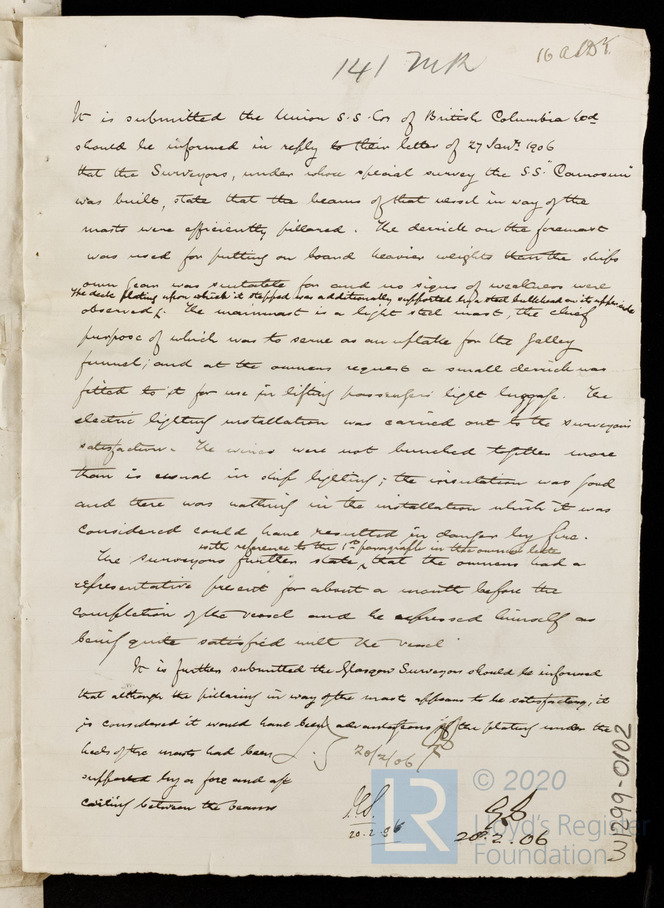 141 MR
16
It is submitted the Union S.S. Co of British Columbia Lod
should be informed in reply to their letter of 27 Jany 1906
that the Surveyors, under whose special survey the S.S. "Camosun"
was built, state that the beams of that vessel in way of the
masts were efficiently pillared. The derrick on the foremast
was used for putting on board heavier weights than the ships
own gear was suitable for and no signs of weakness were
The deck plating upon which it stepped was additionally supported by a steel bulkhead on its opposite
observed. The mainmast is a light steel mast, the chief
purpose of which was to serve as an uptake for the galley
funnel; and at the owners request a small derrick was
fitted to it for use in lifting passengers light luggage. The
electric lighting installation was carried out to the surveyors
satisfaction. The wires were not bunched together more
than is usual in ship lighting; the insulation was good
and there was nothing in the installation which it was
considered could have resulted in danger by fire.
with reference to the 1st paragraph in the owners letter
The surveyors further state, that the owners had a
representative present for about a month before the
completion of the vessel and he expressed himself as
being quite satisfied with the vessel
It is further submitted the Glasgow Surveyors should be informed
that although the pillaring in way of the masts appears to be satisfactory, it
is considered it would have been advantageous if the plating under the
heels of the masts had been
20/2/06
supported by a fore and aft
carling between the beams
20.2.06
20.2.06
31299-0102
© 2020
LR
Lloyd's Register
Foundation